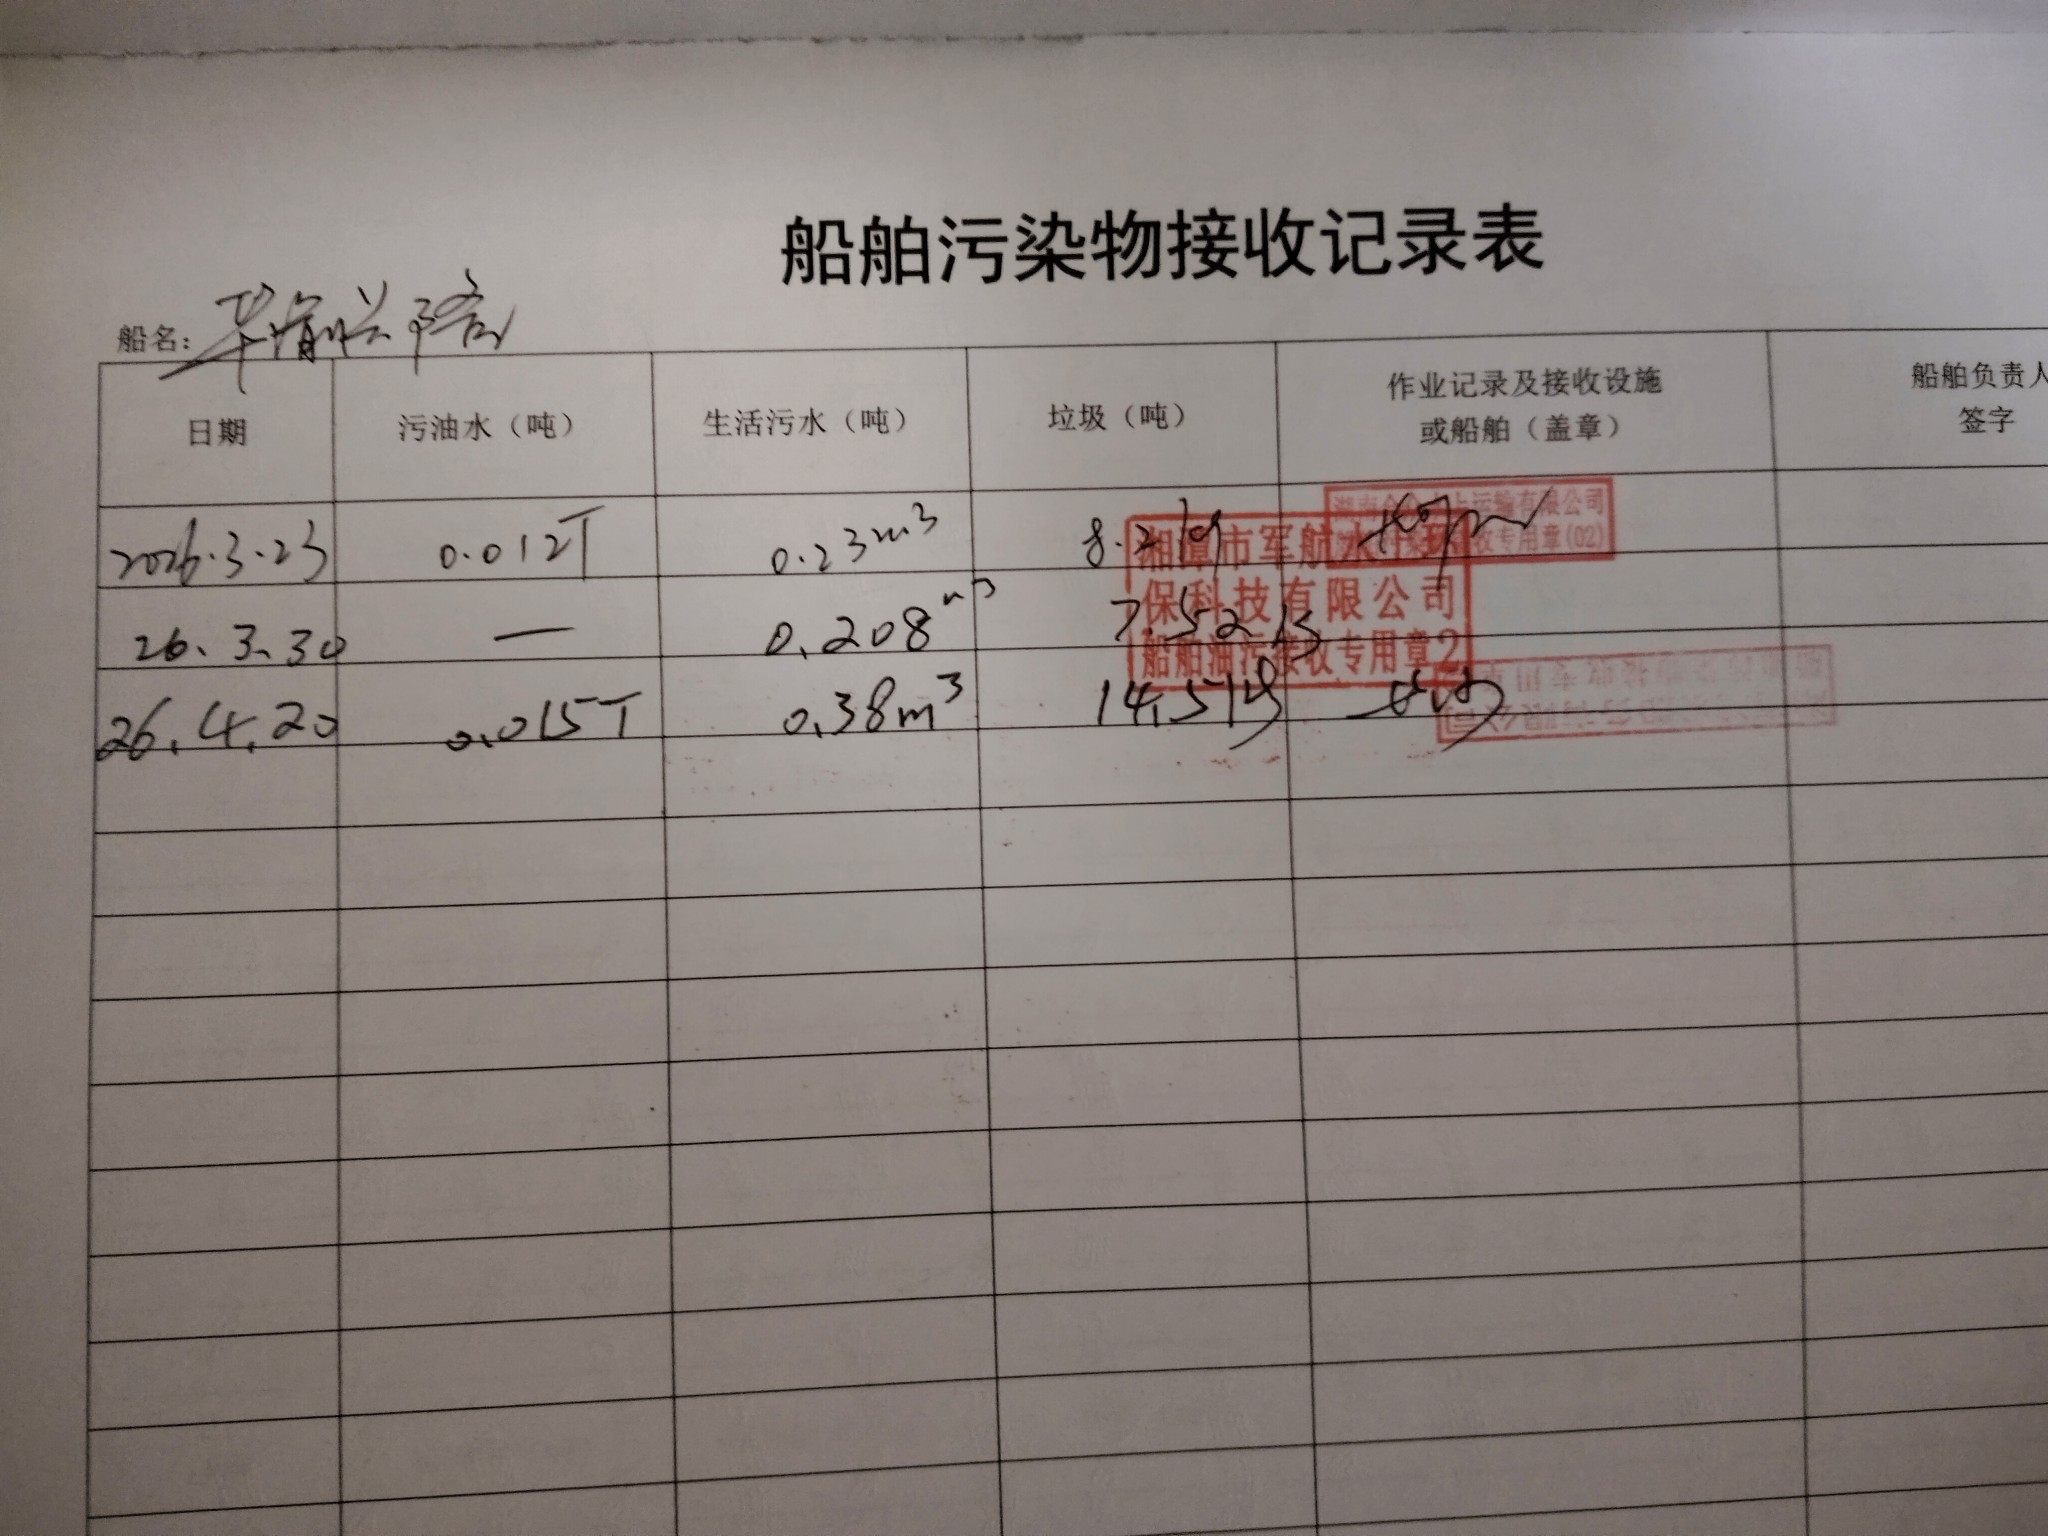 船舶污染物接收记录表
船名：
日期 污油水（吨） 生活污水（吨） 垃圾（吨） 作业记录及接收设施 或船舶（盖章） 船舶负责人 签字
2026.3.23 0.012T 0.23m³ 8.2kg
26.3.30 — 0.208m³ 7.52
26.4.20 0.015T 0.38m³ 14.51kg
湘潭市军航水
保科技有限公司
船舶油污接收专用章2
运输有限公司
收专用章(02)